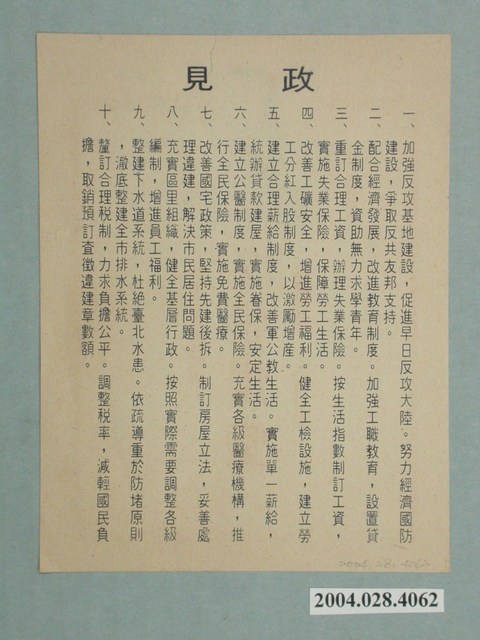 政見
一、加強反攻基地建設，促進早日反攻大陸。努力經濟國防
建設，爭取反共友邦支持。
二、配合經濟發展，改進教育制度。加強工職教育，設置貸
金制度，資助無力求學青年。
三、重訂合理工資，辦理失業保險。按生活指數制訂工資，
實施失業保險，保障勞工生活。
四、改善工礦安全，增進勞工福利。健全工檢設施，建立勞
工分紅入股制度，以激勵增產。
五、建立合理薪給制度，改善軍公教生活。實施單一薪給，
統辦貸款建屋，實施眷保，安定生活。
六、建立公醫制度，實施全民保險。充實各級醫療機構，推
行全民保險，實施免費醫療。
七、改善國宅政策，堅持先建後拆。制訂房屋立法，妥善處
理違建，解決市民居住問題。
八、充實區里組織，健全基層行政。按照實際需要調整各級
編制，增進員工福利。
九、整建下水道系統，杜絕臺北水患。依疏導重於防堵原則
，澈底整建全市排水系統。
十、釐訂合理稅制，力求負擔公平。調整稅率，減輕國民負
擔，取銷預訂查徵違建章數額。
2004.28.4062
2004.028.4062